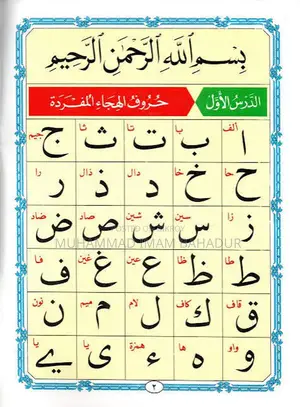 بِسْمِ اللَّهِ الرَّحْمَٰنِ الرَّحِيمِ
الدَّرْسُ الْأَوَّلُ
حُرُوفُ الْهِجَاءِ الْمُفْرَدَة
ألف با تا ثا جيم
ا ب ت ث ج
حا خا دال ذال را
ح خ د ذ ر
زا سين شين صاد ضاد
ز س ش ص ض
MUHAMMAD IMAM BAHADUR
طا ظا عين غين فا
ط ظ ع غ ف
قاف كاف لام ميم نون
ق ك ل م ن
واو ها همزة يا يا
و ه ء ي ے
٢